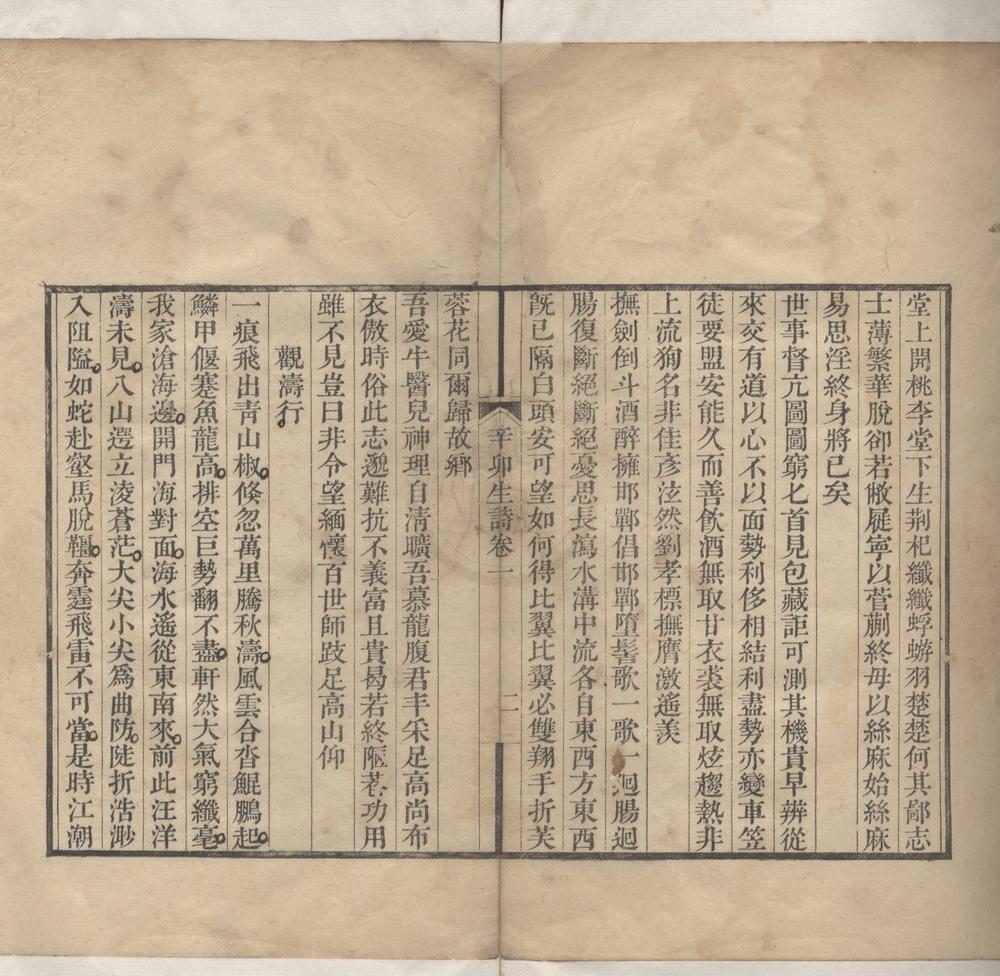 堂上開桃李堂下生荆杞纖纖蜉蝣羽楚楚何其鄙志
士薄繁華脫卻若敝屣寧以菅蒯終毋以絲麻始絲麻
易思淫終身將已矣
世事督亢圖圖窮匕首見包藏詎可測其機貴早辨從
來交有道以心不以面勢利侈相結利盡勢亦變車笠
徒要盟安能久而善飲酒無取甘衣裘無取炫趨熱非
上流狥名非佳彥泫然劉孝標撫膺激遙羨
撫劍倒斗酒醉擁邯鄲倡邯鄲墮髻歌一歌一迴腸迴
腸復斷絕斷絕憂思長瀉水溝中流各自東西方東西
旣已隔白頭安可望如何得比翼比翼必雙翔手折芙
辛卯生詩卷一
二
蓉花同爾歸故鄉
吾愛牛醫兒神理自清曠吾慕龍腹君丰采足高尚布
衣傲時俗此志邈難抗不義富且貴曷若終陋巷功用
雖不見豈曰非令望緬懷百世師跂足高山仰
觀濤行
一痕飛出青山椒倏忽萬里騰秋濤風雲合沓鯤鵬起
鱗甲偃蹇魚龍高排空巨勢翻不盡軒然大氣窮纖毫
我家滄海邊開門海對面海水遙從東南來前此汪洋
濤未見八山遝立淩蒼茫大尖小尖爲曲防陡折浩渺
入阻隘如蛇赴壑馬脫韁奔霆飛雷不可當是時江潮